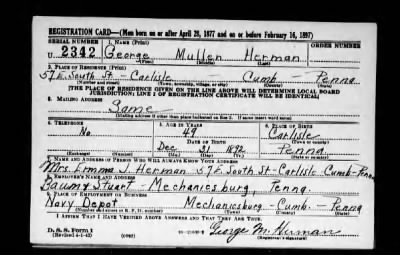 REGISTRATION CARD—(Men born on or after April 28, 1877 and on or before February 16, 1897)
SERIAL NUMBER 1. NAME (Print) ORDER NUMBER
U 2342 George Mullen Herman
(First) (Middle) (Last)
2. PLACE OF RESIDENCE (Print)
57 E. South St - Carlisle Cumb - Penna
(Number and street) (Town, township, village, or city) (County) (State)
[THE PLACE OF RESIDENCE GIVEN ON THE LINE ABOVE WILL DETERMINE LOCAL BOARD
JURISDICTION; LINE 2 OF REGISTRATION CERTIFICATE WILL BE IDENTICAL]
3. MAILING ADDRESS
Same
[Mailing address if other than place indicated on line 2. If same insert word same]
4. TELEPHONE 5. AGE IN YEARS 6. PLACE OF BIRTH
No 49 Carlisle
DATE OF BIRTH (Town or county)
Dec 31 1892 Penna
(Exchange) (Number) (Mo.) (Day) (Yr.) (State or country)
7. NAME AND ADDRESS OF PERSON WHO WILL ALWAYS KNOW YOUR ADDRESS
Mrs. Emma J. Herman 57 E. South St - Carlisle Cumb - Penna
8. EMPLOYER'S NAME AND ADDRESS
Baumy Stuart - Mechanicsburg, Penna.
9. PLACE OF EMPLOYMENT OR BUSINESS
Navy Depot Mechanicsburg - Cumb. - Penna
(Number and street or R. F. D. number) (Town) (County) (State)
I AFFIRM THAT I HAVE VERIFIED ABOVE ANSWERS AND THAT THEY ARE TRUE.
D. S. S. Form 1
(Revised 4-1-42) (over) George M. Herman
(Registrant's signature)